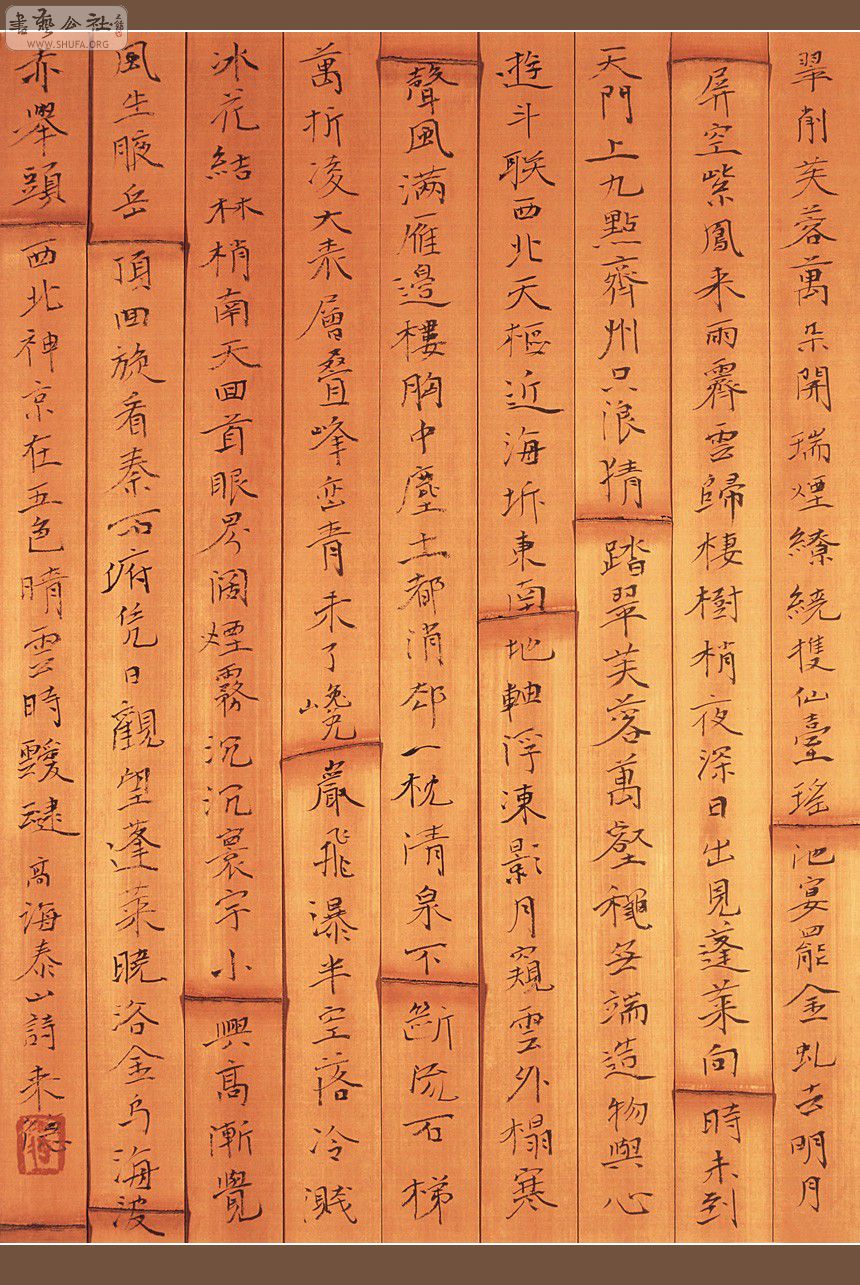 翠削芙蓉萬朵開瑞煙繚繞擭仙臺瑤池宴罷金虬去明月
屏空紫鳳来雨霽雲歸棲樹梢夜深日出見蓬莱向時未到
天門上九點齊州只浪猜踏翠芙蓉萬壑穐無端造物與心
逰斗联西北天樞近海坼東南地軸浮凍影月窺雲外榻寒
聲風满雁邊樓胸中塵土都消却一枕清泉不斷流石梯
萬折凌大表層疊峰峦青未了巉巖飛瀑半空落冷濺
冰花結林梢南天回首眼界阔煙霧沉沉寰宇小興髙漸覺
風生腋岳頂回旋看秦石府凭日觀望蓬莱曉浴金乌海波
赤舉頭西北神京在五色晴雲時靉靆髙海泰山詩来德
書藝公社
WWW.SHUFA.ORG